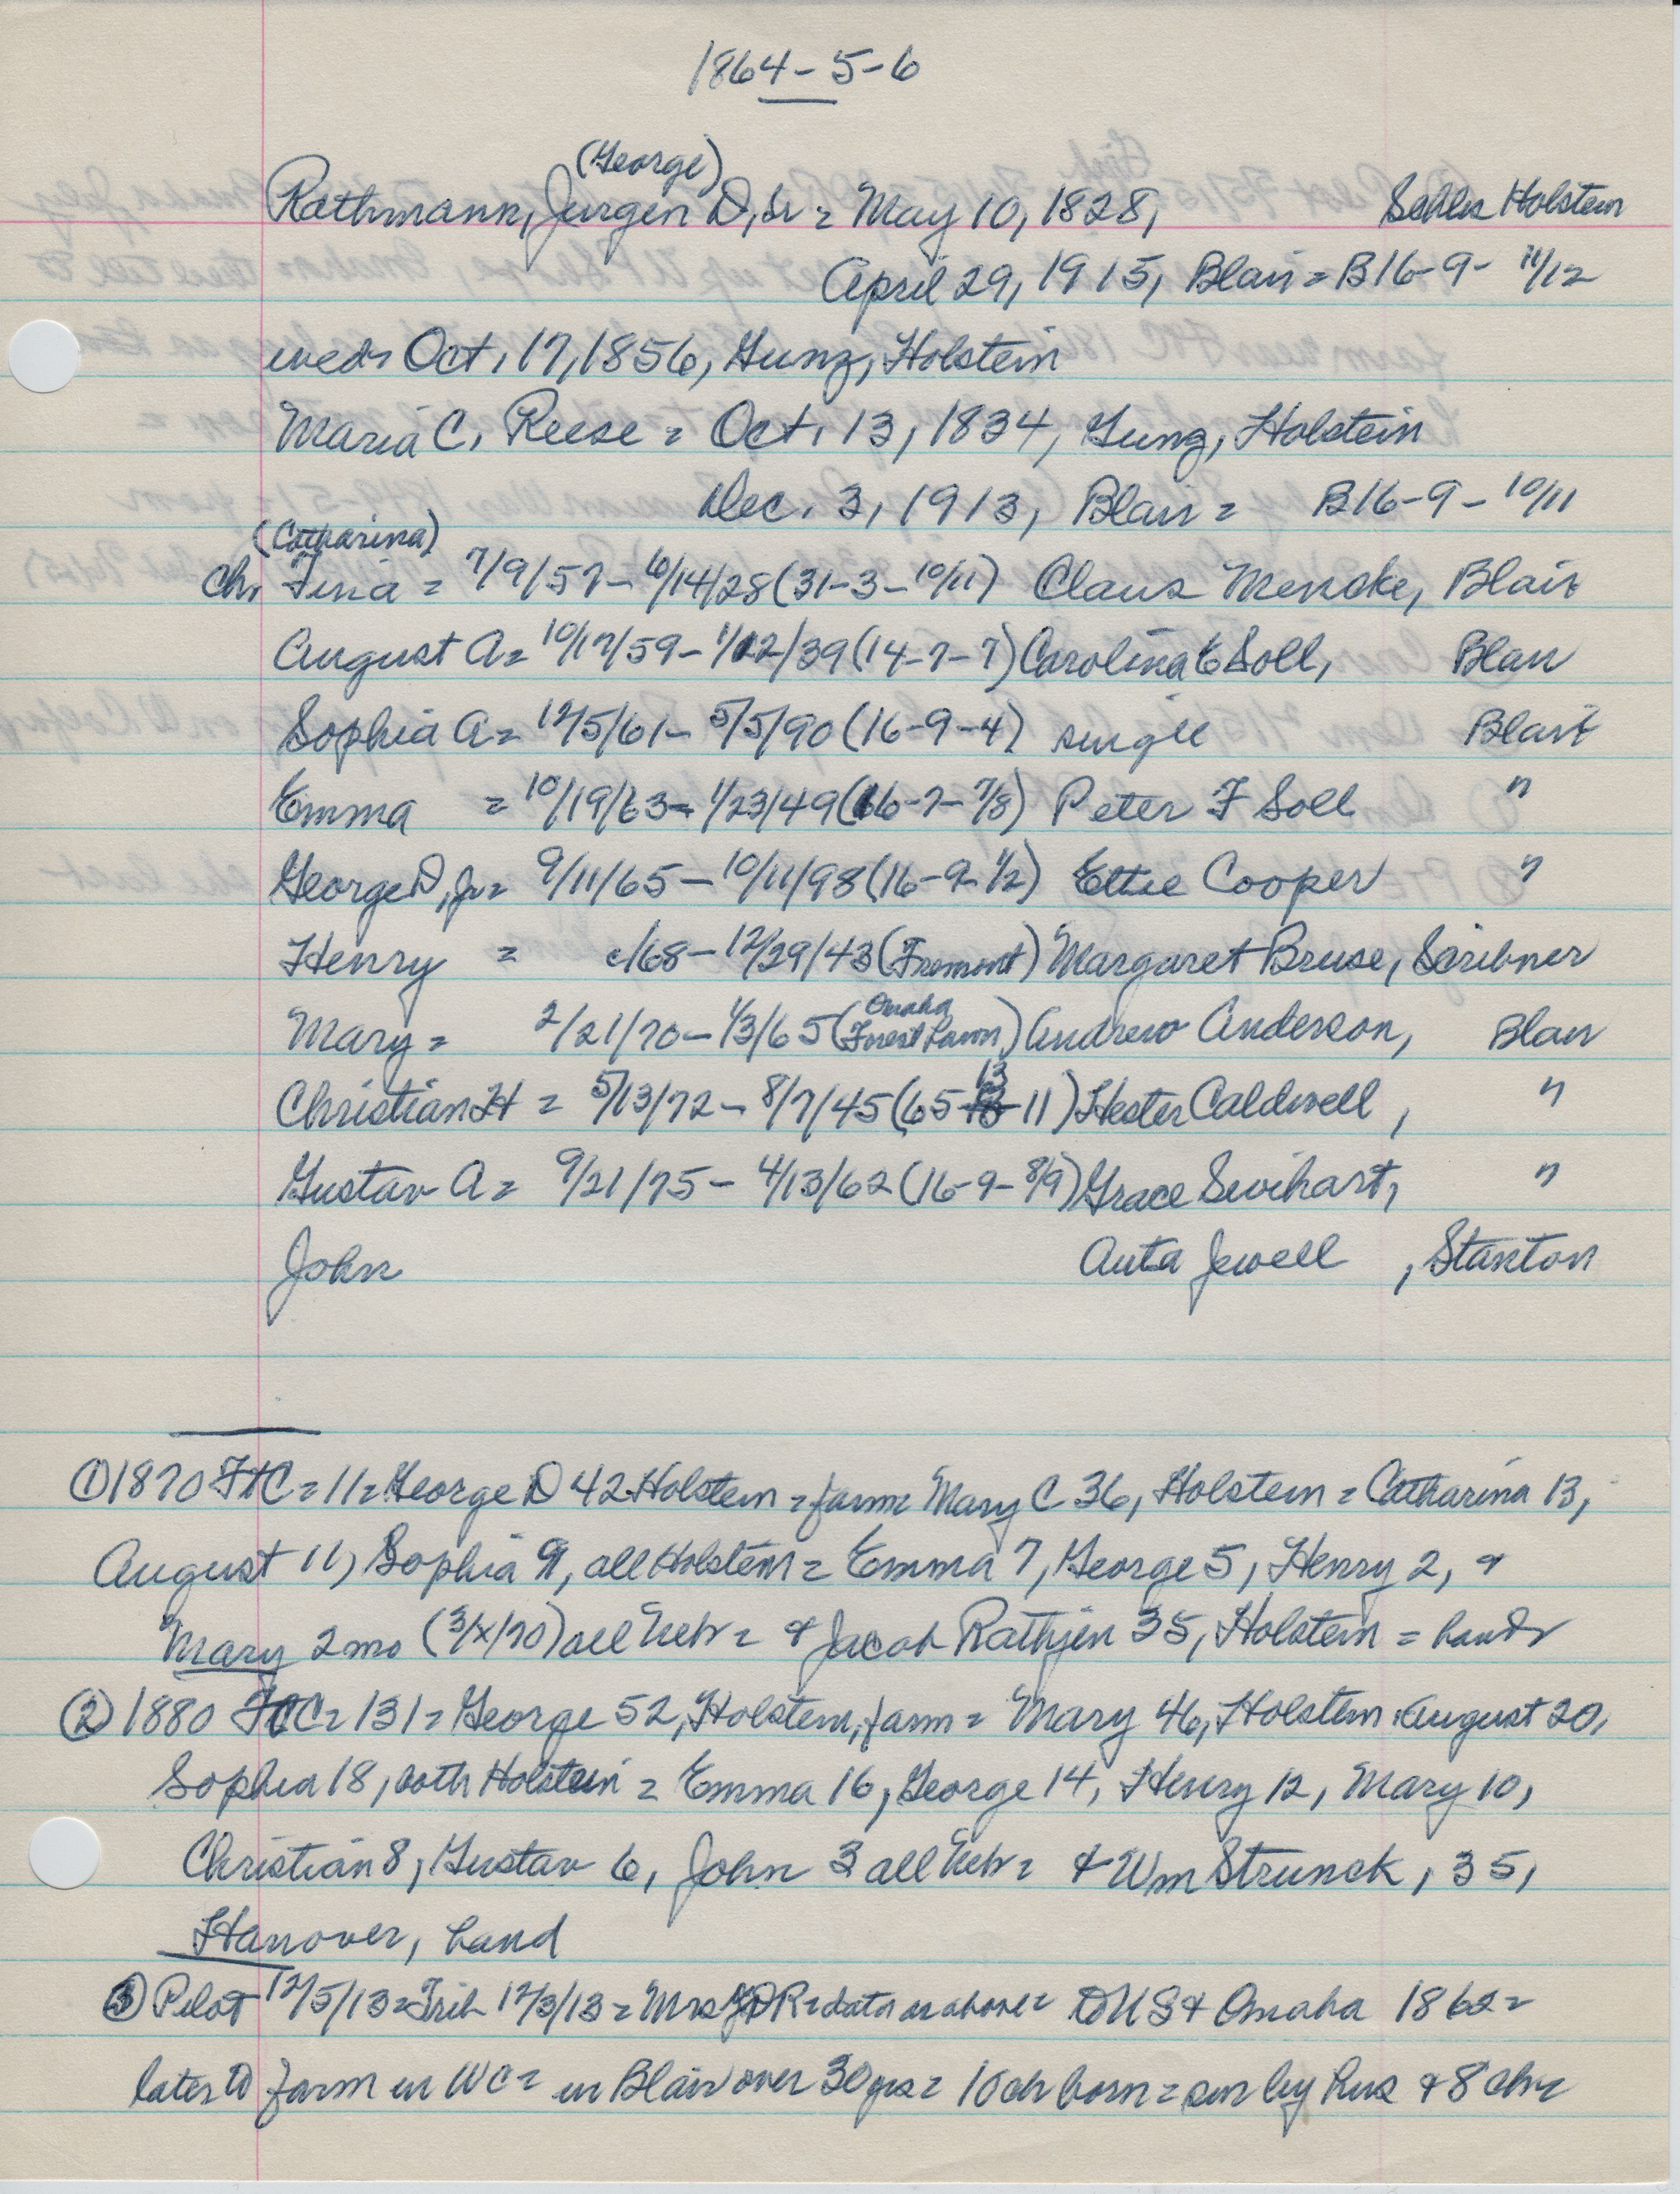 1864-5-6
(George)
Rathmann, Jurgen D, Sr = May 10, 1828, Schles Holstein
April 29, 1915, Blair = B16-9- 11/12
weds Oct, 17, 1856, Gunz, Holstein
Maria C. Reese = Oct, 13, 1834, Gunz, Holstein
Dec. 3, 1913, Blair = B16-9-10/11
(Catharina)
Ch, Tena = 7/9/57-6/14/28 (31-3-10/11) Claus Mencke, Blair
August A = 10/17/59-1/12/39 (14-7-7) Carolina Soll, Blair
Sophia A = 12/5/61-5/5/90 (16-9-4) single Blair
Emma = 10/19/63-1/23/49 (16-7-7/8) Peter F Soll "
George D, Jr = 9/11/65-10/11/98 (16-9-1/2) Ettie Cooper "
Henry = c/68-12/29/43 (Fremont) Margaret Bruse, Scribner
Mary = 2/21/70-1/3/65 (Omaha Forest Lawn) Andrew Anderson, Blair
Christian H = 5/13/72-8/7/45 (65-13-11) Hester Caldwell, "
Gustav A = 9/21/75-4/13/62 (16-9-8/9) Grace Swihart, "
John Auta Jewell, Stanton
① 1870 FTC = 11 = George D 42 Holstein = farm = Mary C 36, Holstein = Catharina 13,
August 11, Sophia 9, all Holstein = Emma 7, George 5, Henry 2, &
Mary 2 mo (3/x/70) all Nebr = & Jacob Rathjen 35, Holstein = hand
② 1880 FCC = 131 = George 52, Holstein, farm = Mary 46, Holstein, August 20,
Sophia 18, both Holstein = Emma 16, George 14, Henry 12, Mary 10,
Christian 8, Gustav 6, John 3 all Nebr = & Wm Strunck, 35,
Hanover, hand
③ Pilot 12/5/13 = Trib 12/3/13 = Mrs JDR = data as above = to US & Omaha 1862 =
later to farm in WC = in Blair over 30 yrs = 10 ch born = sur by hus & 8 ch =